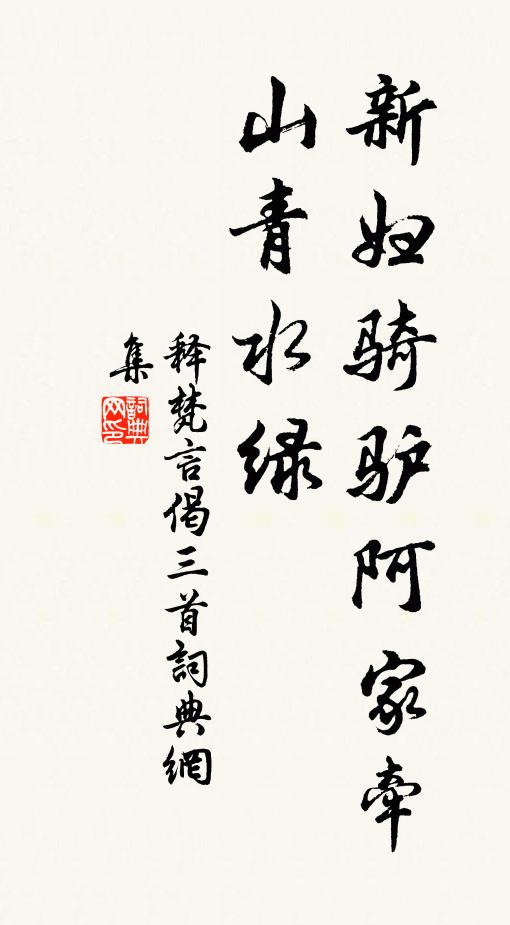 新妇骑驴阿家牵
山青水绿
释梵言偈三首詞典網
集
詞典
网印